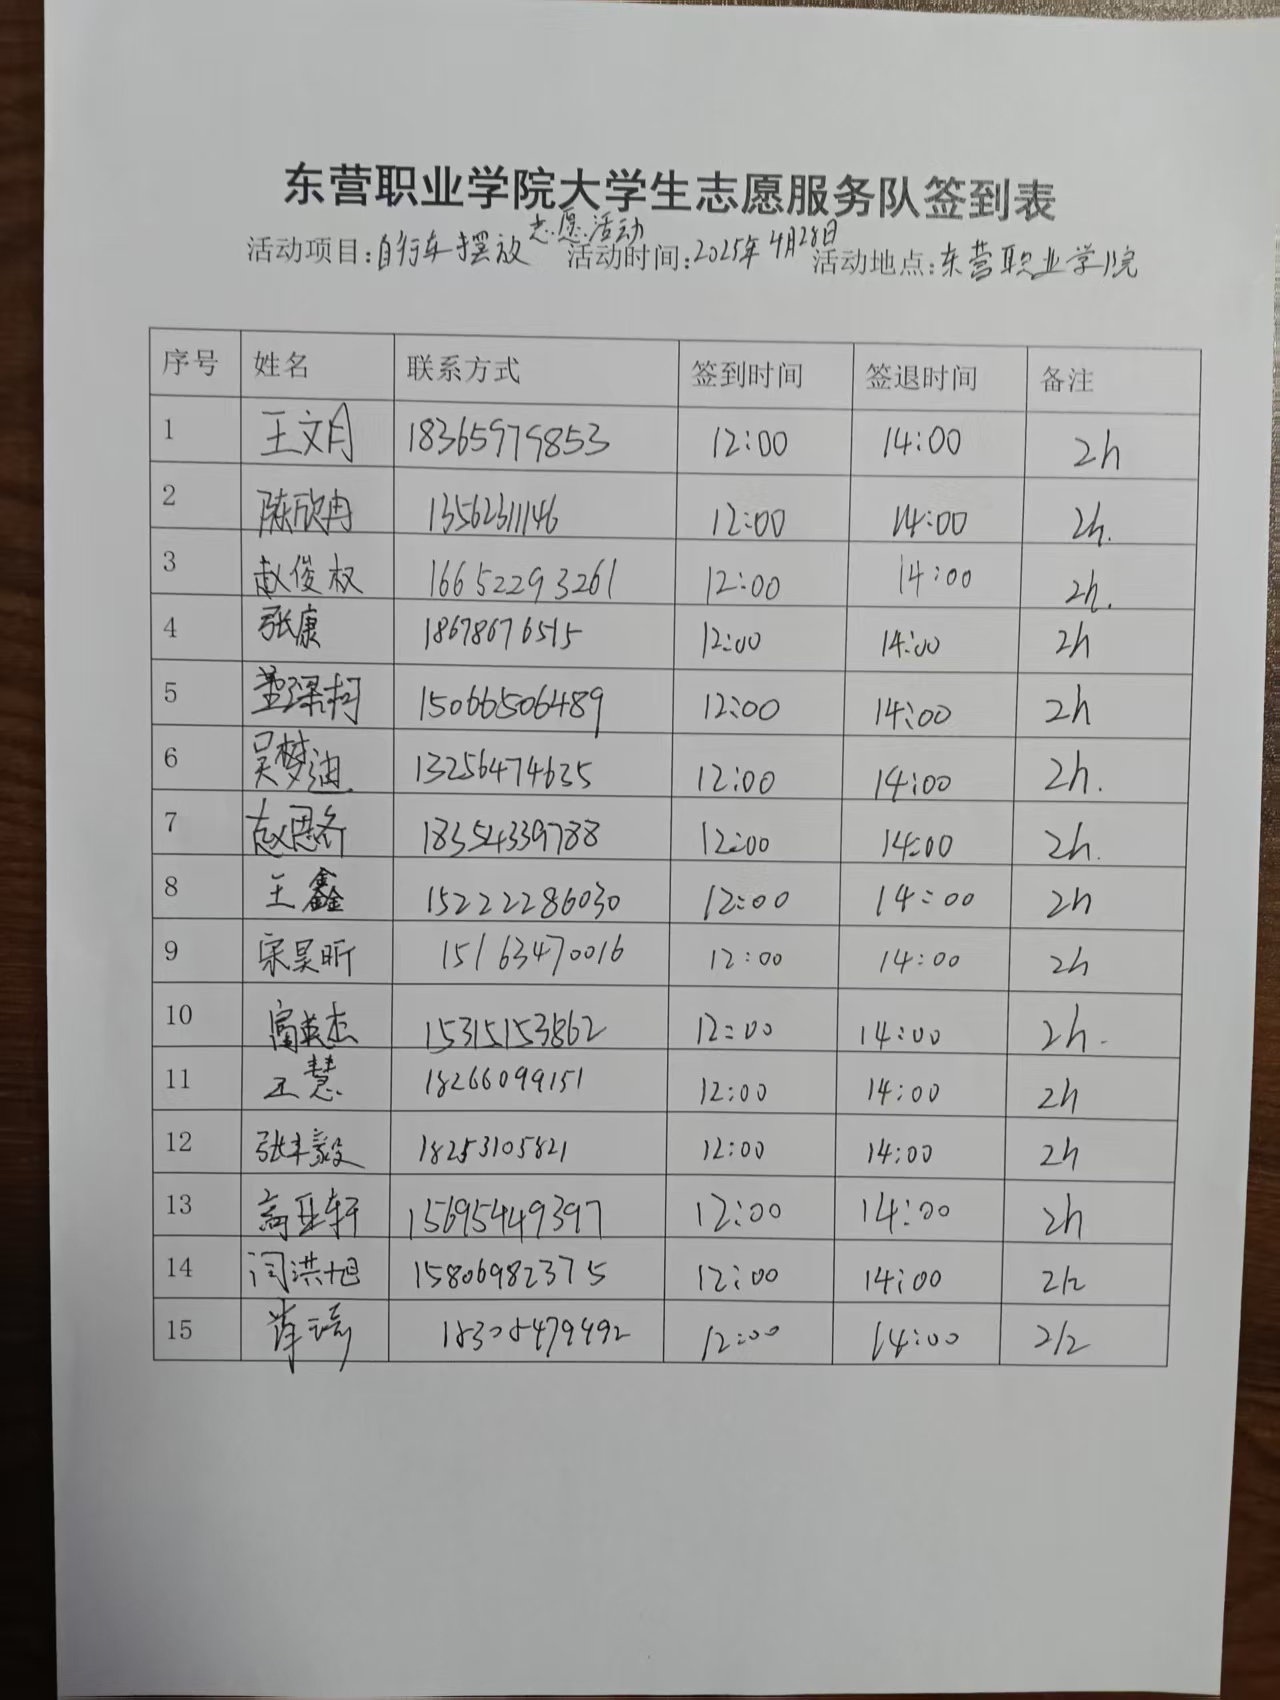 东营职业学院大学生志愿服务队签到表
活动项目:自行车摆放志愿活动 活动时间:2025年4月28日 活动地点:东营职业学院
序号 姓名 联系方式 签到时间 签退时间 备注
1 王文月 18365979853 12:00 14:00 2h
2 陈欣冉 13562311146 12:00 14:00 2h.
3 赵俊权 16652293261 12:00 14:00 2h.
4 张康 18678676515 12:00 14:00 2h
5 15066506489 12:00 14:00 2h
6 吴梦迪 13256474635 12:00 14:00 2h.
7 18354339788 12:00 14:00 2h.
8 王鑫 15222286030 12:00 14:00 2h
9 宋昊昕 15163470016 12:00 14:00 2h
10 高英杰 15315153862 12:00 14:00 2h.
11 王慧 18266099151 12:00 14:00 2h
12 张丰毅 18253105821 12:00 14:00 2h
13 高亚轩 15695449397 12:00 14:00 2h
14 闫洪旭 15806982375 12:00 14:00 2h
15 12:00 14:00 2h